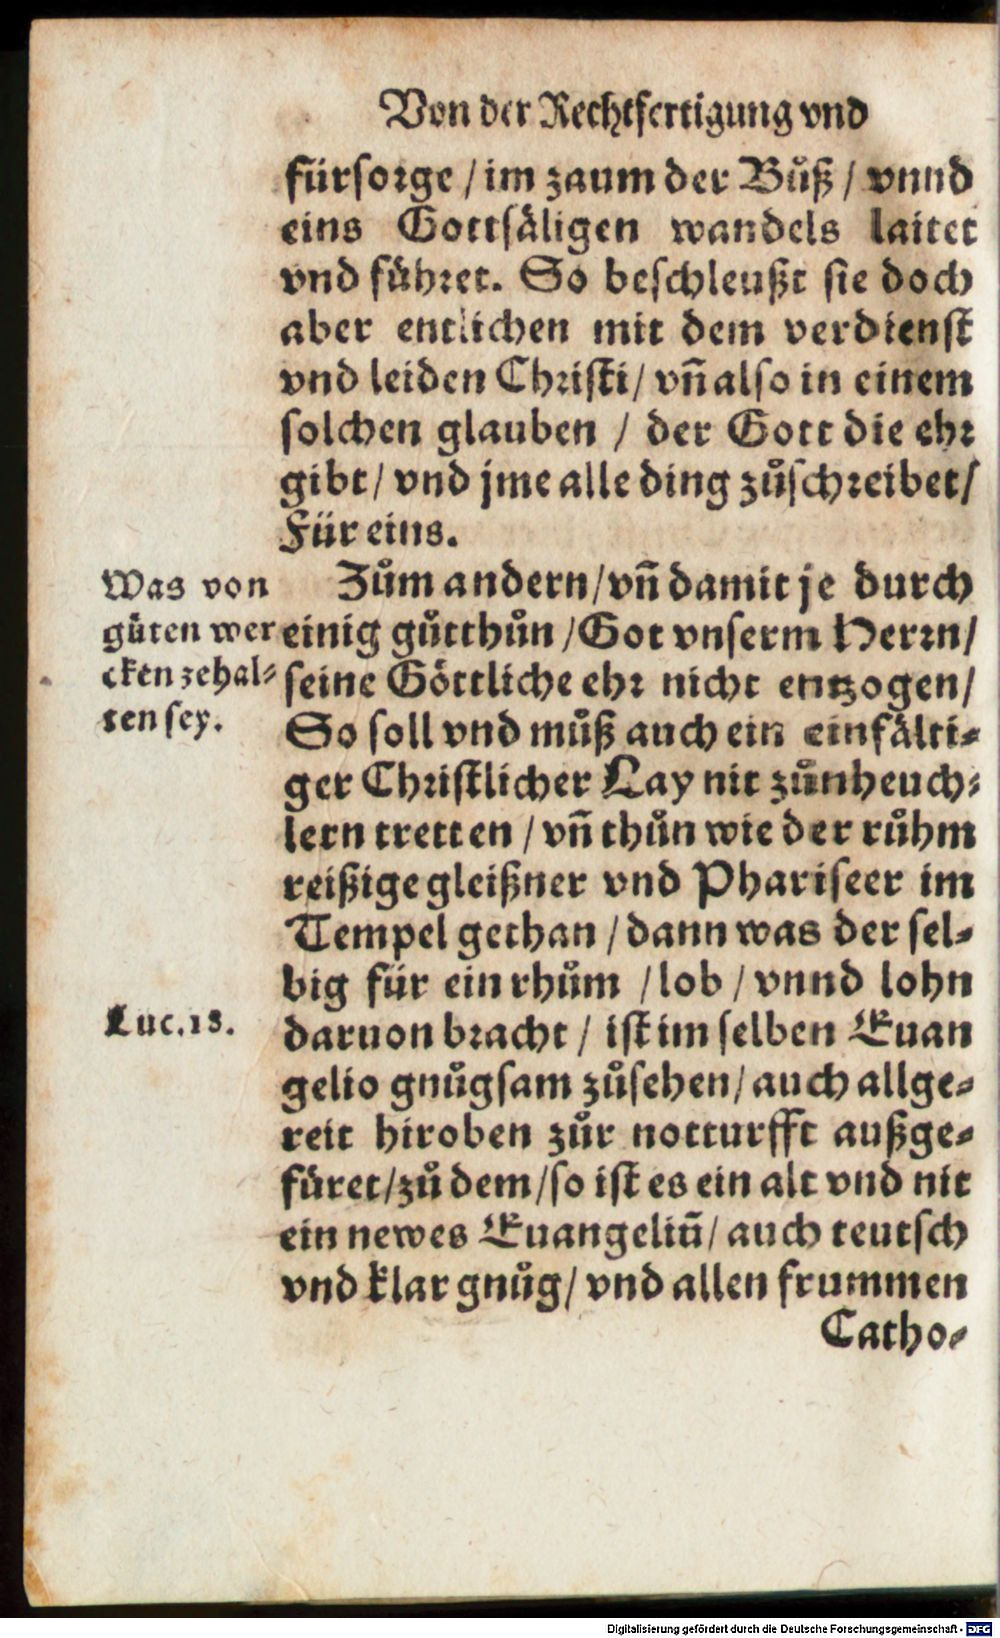 Von der Rechtfertigung vnd
fürsorge / im zaum der Bůß / vnnd
eins Gottsäligen wandels laitet
vnd führet. So beschleußt sie doch
aber entlichen mit dem verdienst
vnd leiden Christi / vñ also in einem
solchen glauben / der Gott die ehr
gibt / vnd jme alle ding zůschreibet /
Für eins.
Was von
gůten wer
cken zehal⸗
ten sey.
Zům andern / vñ damit je durch
einig gůtthůn / Got vnserm Herrn /
seine Göttliche ehr nicht entzogen /
So soll vnd můß auch ein einfälti⸗
ger Christlicher Lay nit zůnheuch⸗
lern tretten / vñ thůn wie der růhm
reißige gleißner vnd Phariseer im
Tempel gethan / dann was der sel⸗
big für ein rhům / lob / vnnd lohn
Luc.18.
daruon bracht / ist im selben Euan
gelio gnůgsam zůsehen / auch allge⸗
reit hiroben zůr notturfft außge⸗
füret / zů dem / so ist es ein alt vnd nit
ein newes Euangeliũ / auch teutsch
vnd klar gnůg / vnd allen frummen
Catho⸗
Digitalisierung gefördert durch die Deutsche Forschungsgemeinschaft - DFG